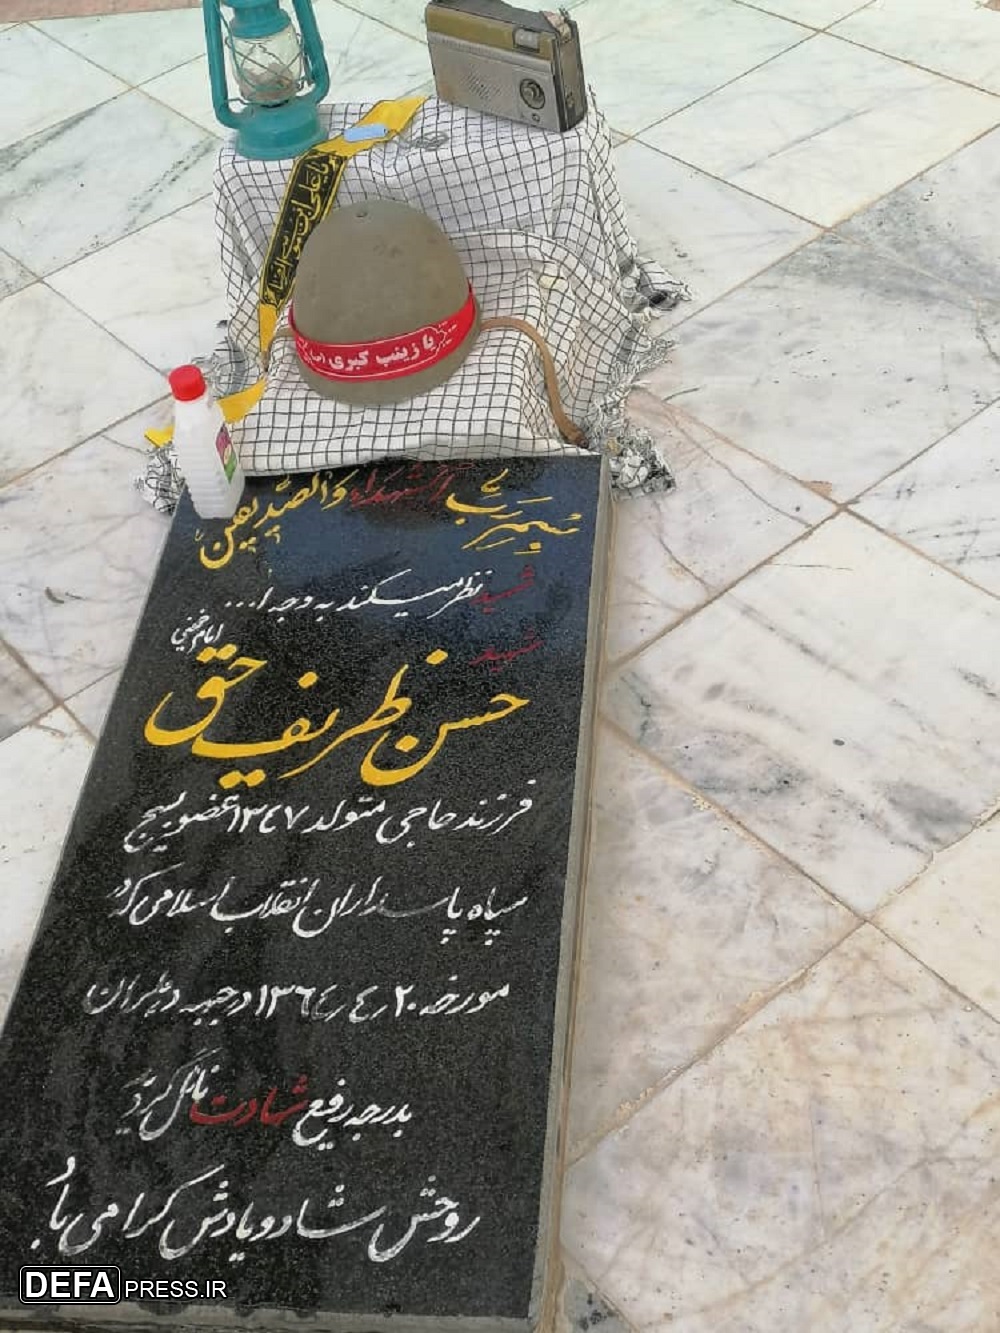 یا علی ابن موسی الرضا
یا زینب کبری
بسم رب الشهداء والصدیقین
شهید نظر میکند به وجه ا...
امام خمینی
شهید
حسن ظریف حق
فرزند حاجی متولد ۱۳٤۷ عضو بسیج
سپاه پاسداران انقلاب اسلامی که در
مورخه ۲۰ر٤ر۱۳٦٤ در جبهه دهلران
بدرجه رفیع شهادت نائل گردید
روحش شاد و یادش گرامی باد
DEFAPRESS.IR